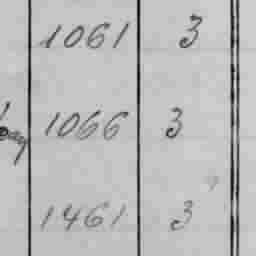 1061 3
1066 3
1461 3